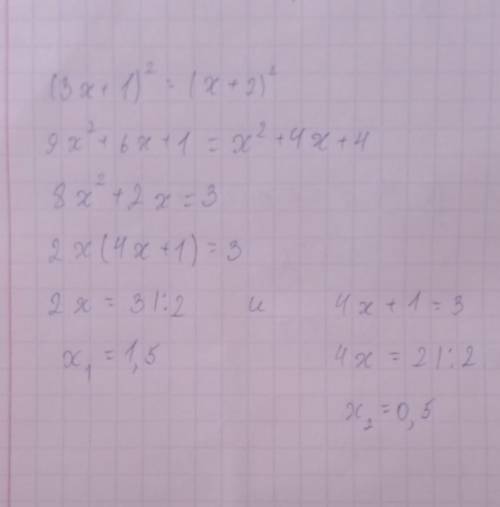 (3x+1)² = (x+2)²
9x²+6x+1 = x²+4x+4
8x²+2x=3
2x(4x+1)=3
2x = 3 |:2 и 4x+1=3
x₁ = 1,5 4x = 2 |:2
x₂=0,5